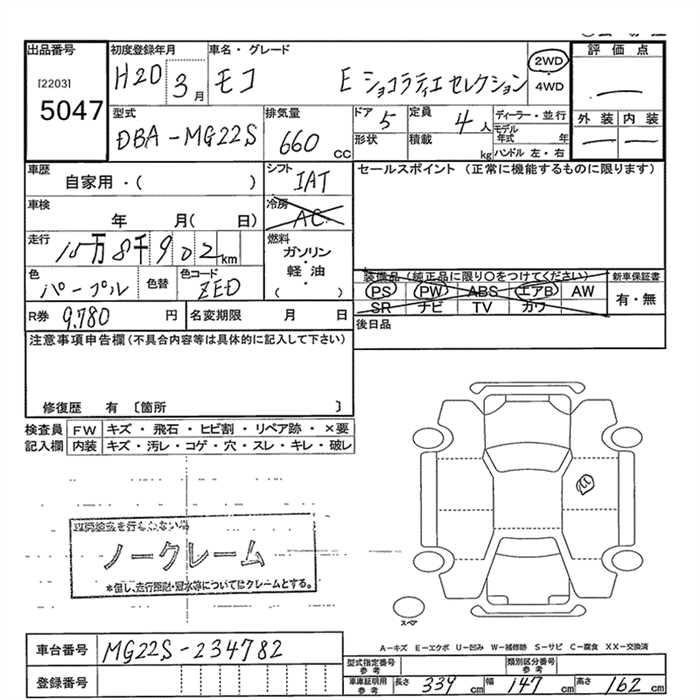 出品番号
[2203]
5047
初度登録年月
H20 3月
車名・グレード
モコ E ショコラティエ セレクション
2WD
4WD
評価点
外装 内装
型式
DBA-MG22S
排気量
660 CC
ドア 5
形状
定員 4人
積載 kg
ディーラー・並行
モデル年式 年
ハンドル 左・右
車歴
自家用・( )
シフト
IAT
セールスポイント (正常に機能するものに限ります)
車検
年 月( 日)
冷房
AC
走行
10万8千902km
燃料
ガソリン
・
軽油
・
( )
色
パープル
色替
色コード
ZED
装備品(純正品に限り○をつけてください)
PS PW ABS エアB AW
SR ナビ TV カワ
新車保証書
有・無
R券 9.780 円
名変期限 月 日
後日品
注意事項申告欄(不具合内容等は具体的に記入して下さい)
修復歴 有 〔箇所 〕
検査員 FW キズ・飛石・ヒビ割・リペア跡・×要
記入欄 内装 キズ・汚レ・コゲ・穴・スレ・キレ・破レ
U
ノークレーム
*但し、走行距離・冠水等についてはクレームとする。
スペア
車台番号 MG22S-234782
登録番号
A-キズ E-エクボ U-凹み W-補修跡 S-サビ C-腐食 XX-交換済
型式指定番号 参考
類別区分番号 参考
車庫証明用 参考
長さ 339 cm 幅 147 cm 高さ 162 cm